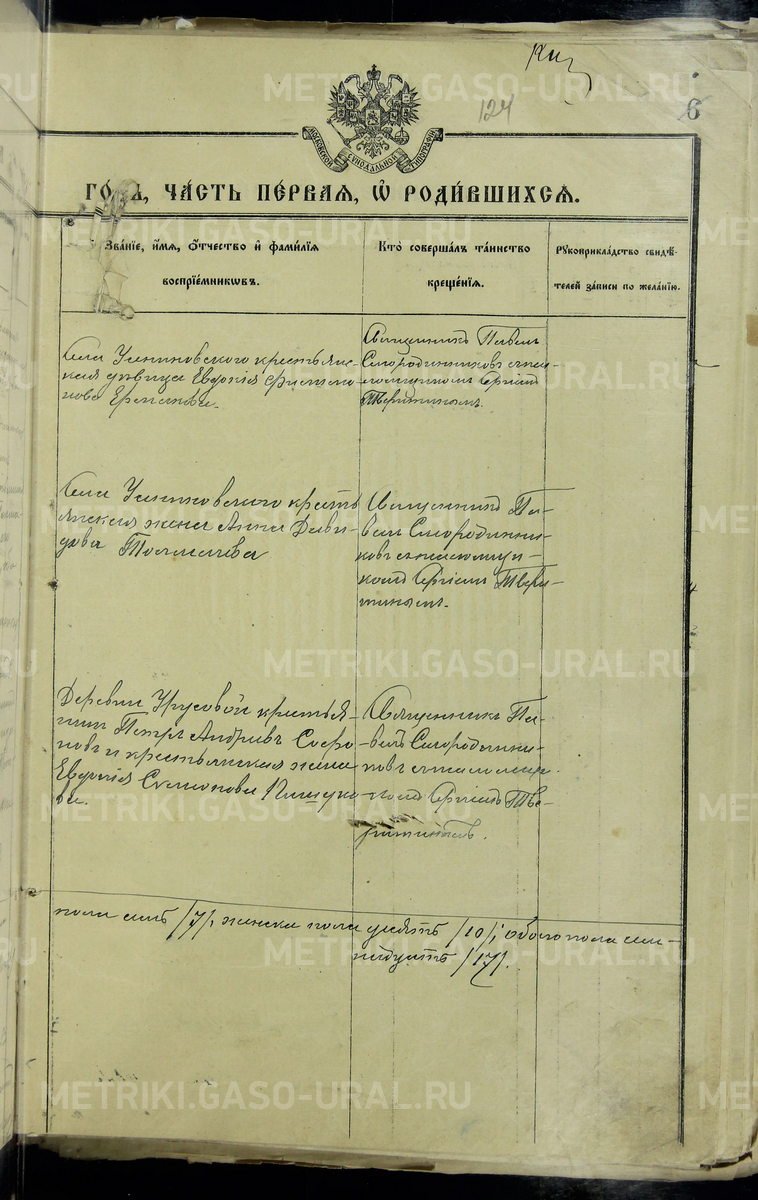 124
6
МОСКОВСКОЙ СѴНОДАЛЬНОЙ ТИПОГРАФІИ
ГО́ДА, ЧА́СТЬ ПЕ́РВАЯ, Ѽ РОДИ́ВШИХСЯ.
Зва́ніе, и́мя, ѻ҆́тчество и҆ фами́лія
воспріе́мниковъ.
Кто̀ соверша́лъ та́инство
креще́нія.
Рукоприкла́дство свидѣ́-
телей за́писи по жела́нію.
Села Усениновского крестьян-
ская дѣвица Евдокія Филимо-
нова
Священникъ Павелъ
Смородинниковъ съ пса-
ломщикомъ Сергіемъ
Тверитинымъ.
Села Усениновского кресть
янская жена Анна Дави-
дова Толмачева
Священникъ Па-
велъ Смородинни-
ковъ съ псаломщи-
комъ Сергіемъ Твери-
тинымъ.
Деревни Урусовой крестья-
нинъ Петръ Андреевъ Софро
новъ и крестьянская жена
Евдокія Симонова
ва.
Священникъ Па-
велъ Смородинни-
ковъ съ псаломщи-
комъ Сергіемъ Тве-
ритинымъ.
пола семь /7/, женска пола десять /10/, обоего пола сем-
надцать /17/.
METRIKI.GASO-URAL.RU